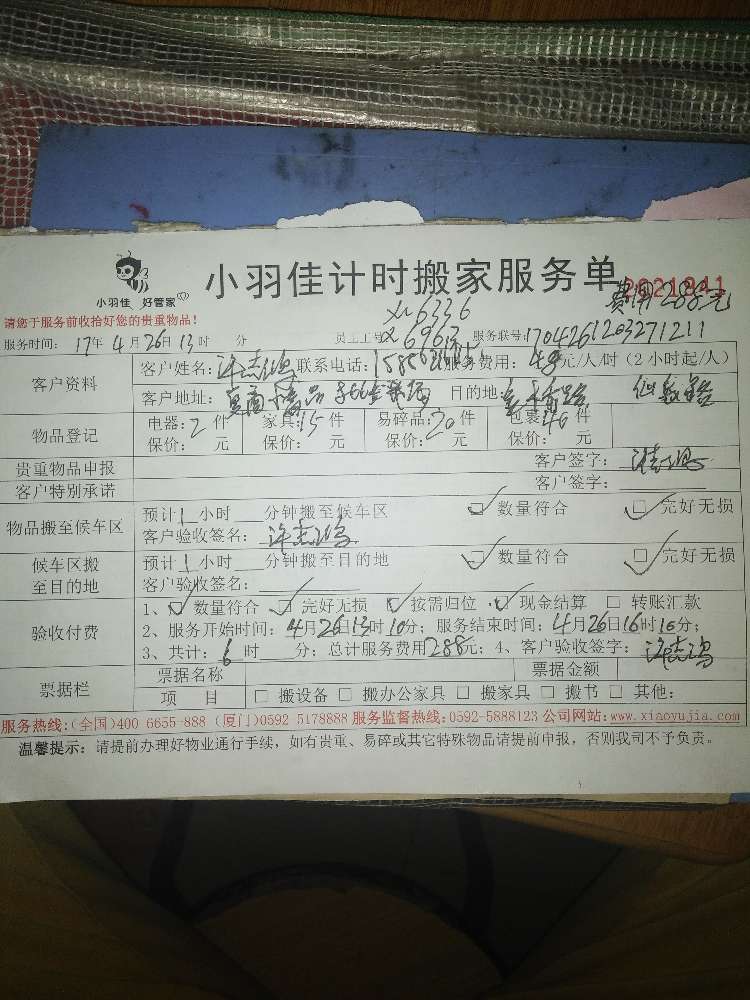 小羽佳计时搬家服务单 2621941
小羽佳 好管家
费用288元
X6336
请您于服务前收拾好您的贵重物品!
服务时间: 17年4月26日13时 分 员工工号: X6963 服务联号: 1704261203271211
客户资料
客户姓名: 许志鸿 联系电话: 服务费用: 48元/人/时 (2小时起/人)
客户地址: 目的地:
物品登记
电器: 2件 家具: 15件 易碎品: 20件 包裹 40件
保价: 元 保价: 元 保价: 元 保价: 元
贵重物品申报 客户签字:
客户特别承诺 客户签字:
物品搬至候车区
预计1小时 分钟搬至候车区 数量符合 完好无损
客户验收签名: 许志鸿
候车区搬至目的地
预计1小时 分钟搬至目的地 数量符合 完好无损
客户验收签名:
验收付费
1、数量符合 完好无损 按需归位 现金结算 转账汇款
2、服务开始时间: 4月26日13时10分; 服务结束时间: 4月26日16时10分;
3、共计: 6时 分; 总计服务费用288元; 4、客户验收签字: 许志鸿
票据栏
票据名称 票据金额
项 目 搬设备 搬办公家具 搬家具 搬书 其他:
服务热线:(全国)400 6655 888 (厦门)0592 5178888 服务监督热线:0592-5888123 公司网站:www.xiaoyujia.com
温馨提示: 请提前办理好物业通行手续, 如有贵重、易碎或其它特殊物品请提前申报, 否则我司不予负责。